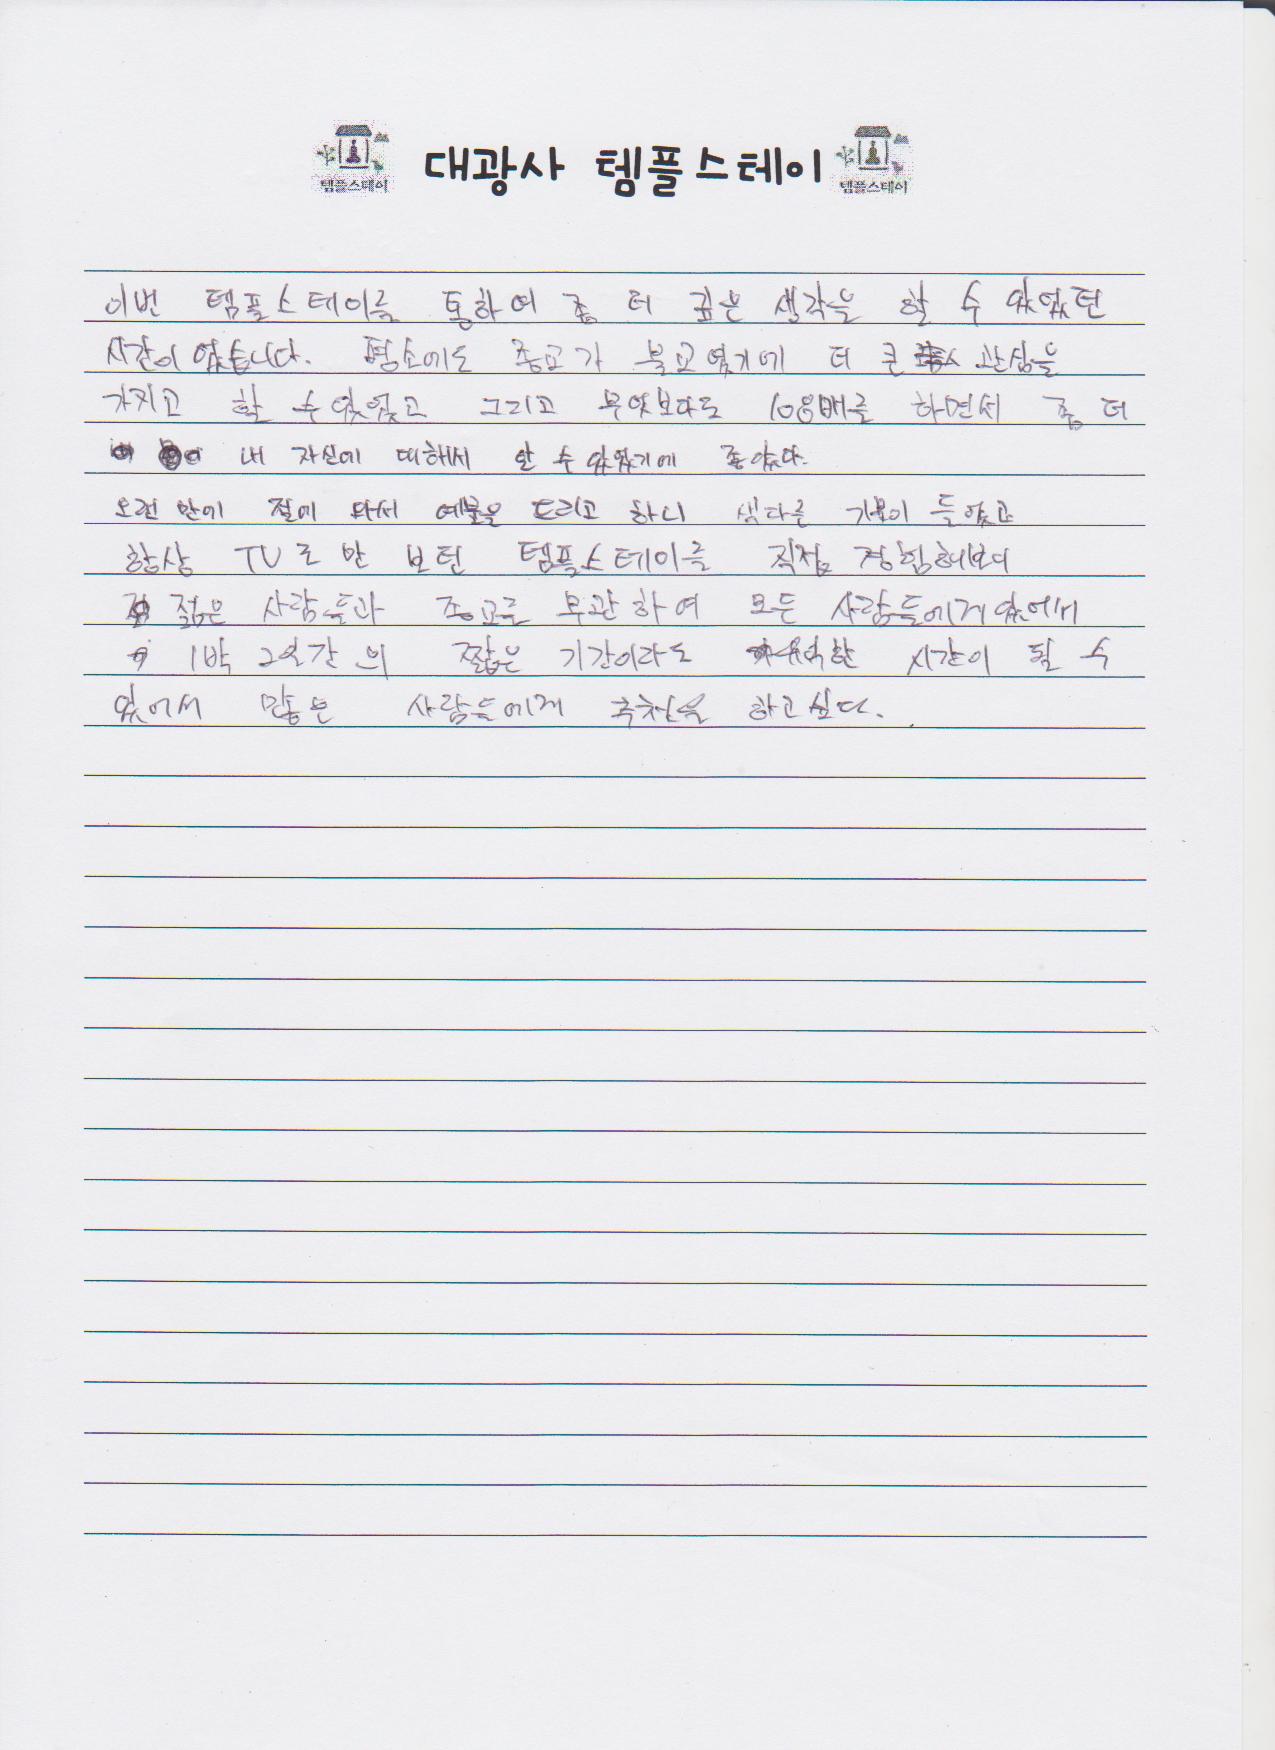 템플스테이 대광사 템플스테이 템플스테이
이번 템플스테이를 통하여 좀 더 깊은 생각을 할 수 있었던
시간이 었습니다. 평소에도 종교가 불교였기에 더 큰 관심을
가지고 할 수 있었고 그리고 무엇보다도 108배를 하면서 좀 더
내 자신에 대해서 알 수 있었기에 좋았다.
오랜 만에 절에 와서 예불을 드리고 하니 색다른 기분이 들었고
항상 TV로 만 보던 템플스테이를 직접 경험해보니
젊은 사람들과 종교를 무관하여 모든 사람들에게 있어서
1박 2일간의 짧은 기간이라도 시간이 될 수
있어서 많은 사람들에게 추천을 하고싶다.